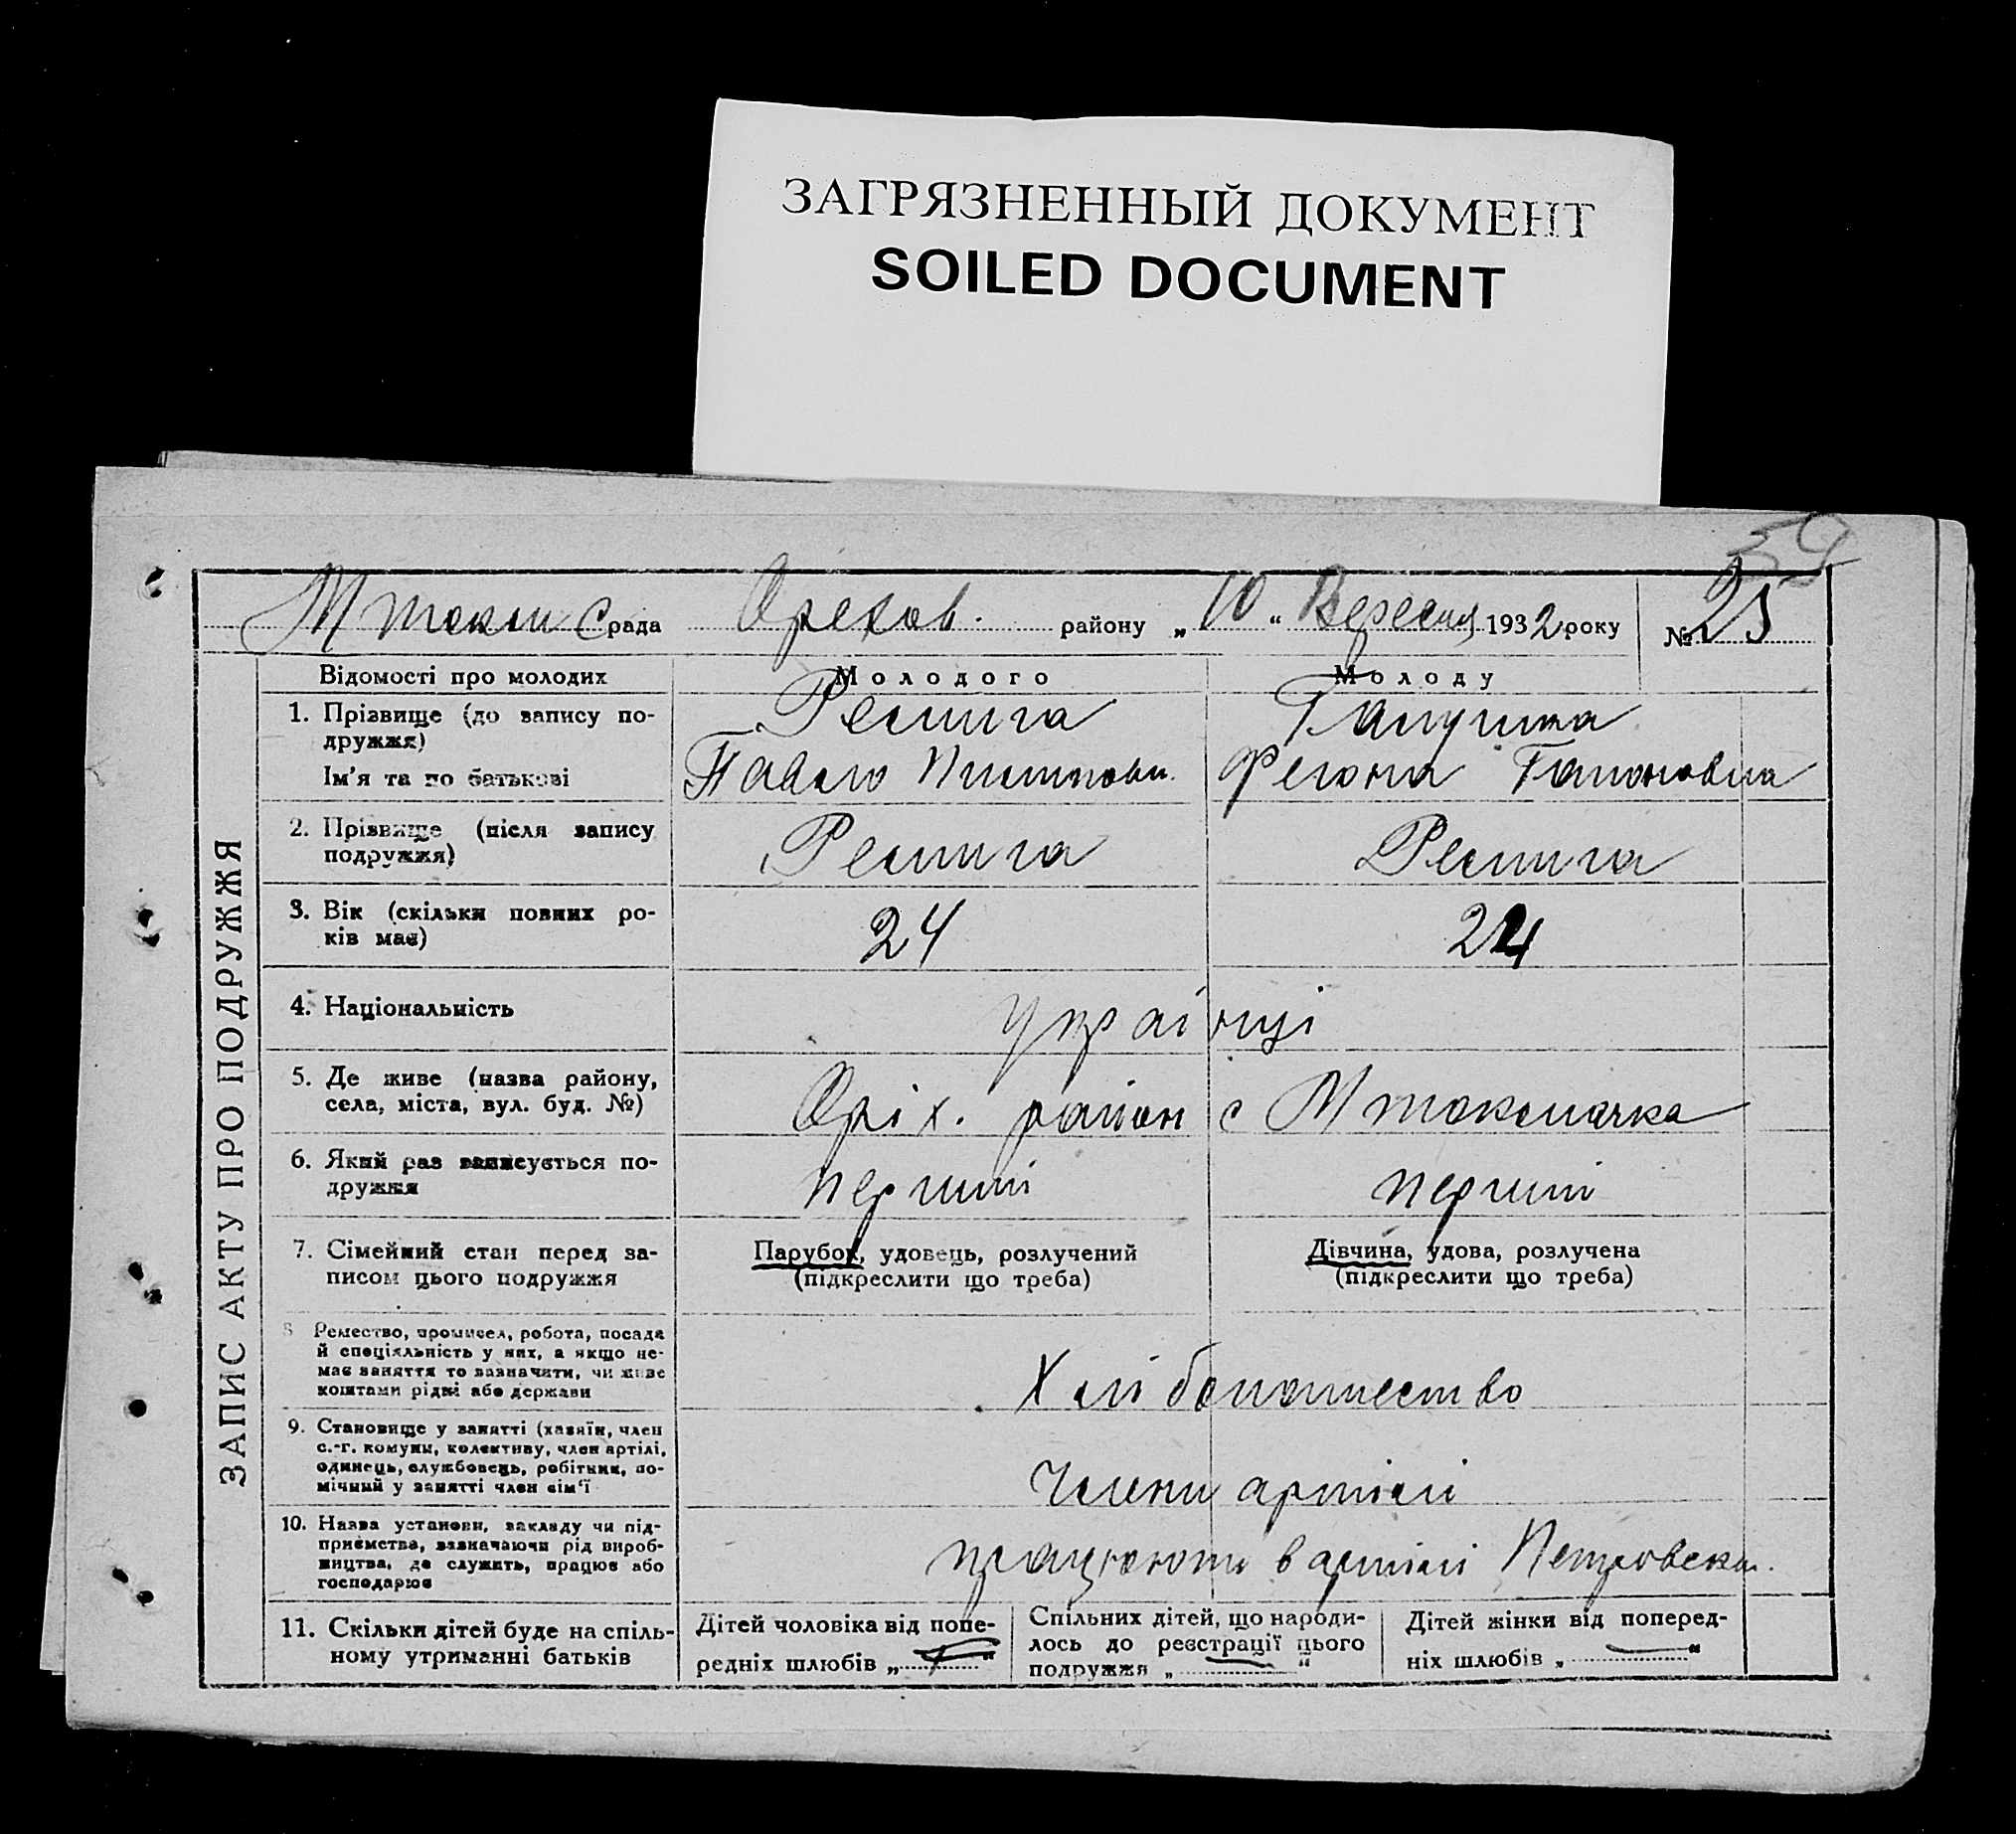 ЗАГРЯЗНЕННЫЙ ДОКУМЕНТ
SOILED DOCUMENT
59
Мтокм Срада Орехов. району „10“ Вересня 1932 року № 25
ЗАПИС АКТУ ПРО ПОДРУЖЖЯ
Відомості про молодих Молодого Молоду
1. Прізвище (до запису по-
дружжя)
Ім'я та по батькові
Павло
2. Прізвище (після запису
подружжя)
3. Вік (скільки повних ро-
ків має)
24 24
4. Національність
Українці
5. Де живе (назва району,
села, міста, вул. буд. №)
Оріх. район с Мтокмачка
6. Який раз записується по-
дружжя
перший перший
7. Сімейний стан перед за-
писом цього подружжя
Парубок, удовець, розлучений
(підкреслити що треба)
Дівчина, удова, розлучена
(підкреслити що треба)
8 Ремество, промисел, робота, посада
й спеціяльність у них, а якщо не-
має заняття то зазначити, чи живе
коштами рідні або держави
Хліборобство
9. Становище у занятті (хазяїн, член
с.-г. комуни, колективу, член артілі,
одинець, службовець, робітник, по-
мічний у занятті член сім'ї
Члени артілі
10. Назва установи, закладу чи під-
приємства, зазначаючи рід вироб-
ництва, де служить, працює або
господарює
працюють в артілі Петровськ.
11. Скільки дітей буде на спіль-
ному утриманні батьків
Дітей чоловіка від попе-
редніх шлюбів „ “
Спільних дітей, що народи-
лось до реєстрації цього
подружжя „ “
Дітей жінки від поперед-
ніх шлюбів „ “